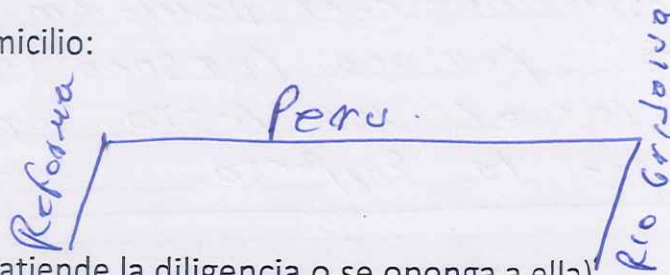 micilio:
Reforma
Peru.
Rio Grijalva
atiende la diligencia o se oponga a ella)